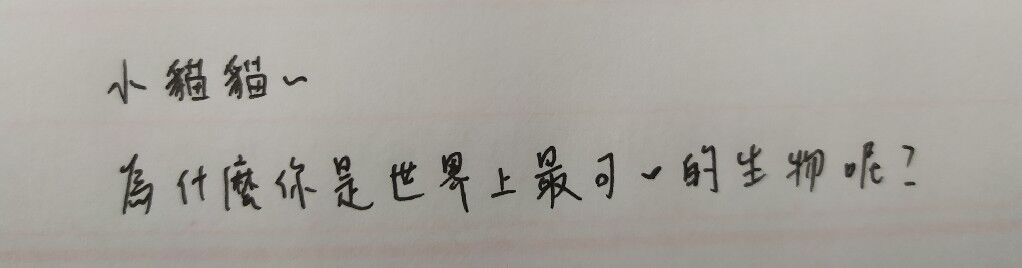 小貓貓~
為什麼你是世界上最可ㄟ的生物呢?